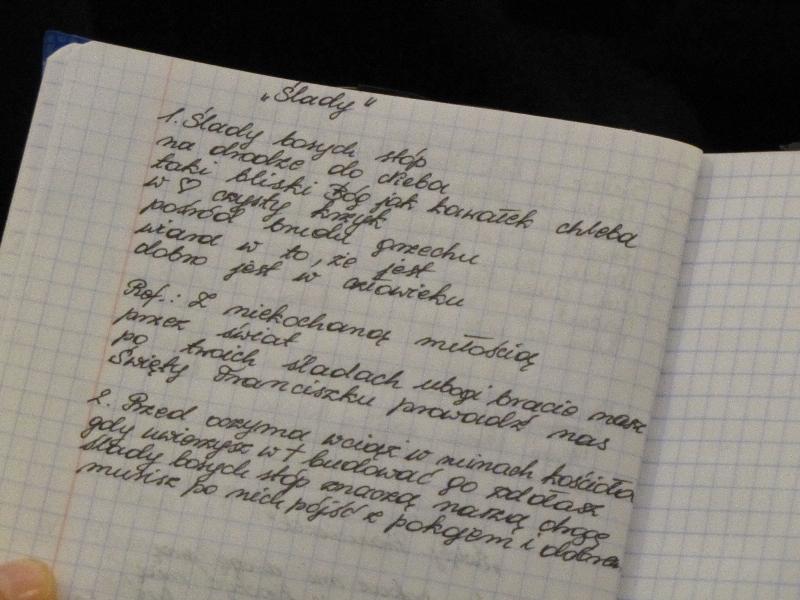 „Ślady"
1. Ślady bosych stóp
na drodze do nieba
taki bliski Bóg jak kawałek chleba
w ♡ czysty krzyk
pośród brudu grzechu
wiara w to, że jest
dobro jest w człowieku
Ref.: Z niekochaną miłością
przez świat
po twoich śladach ubogi bracie nasz
Święty Franciszku prowadź nas
2. Przed oczyma wciąż w ruinach kościoła
gdy uwierzysz w + budować go zdołasz
ślady bosych stóp znaczą naszą drogę
musisz po nich pójść z pokojem i dobrem